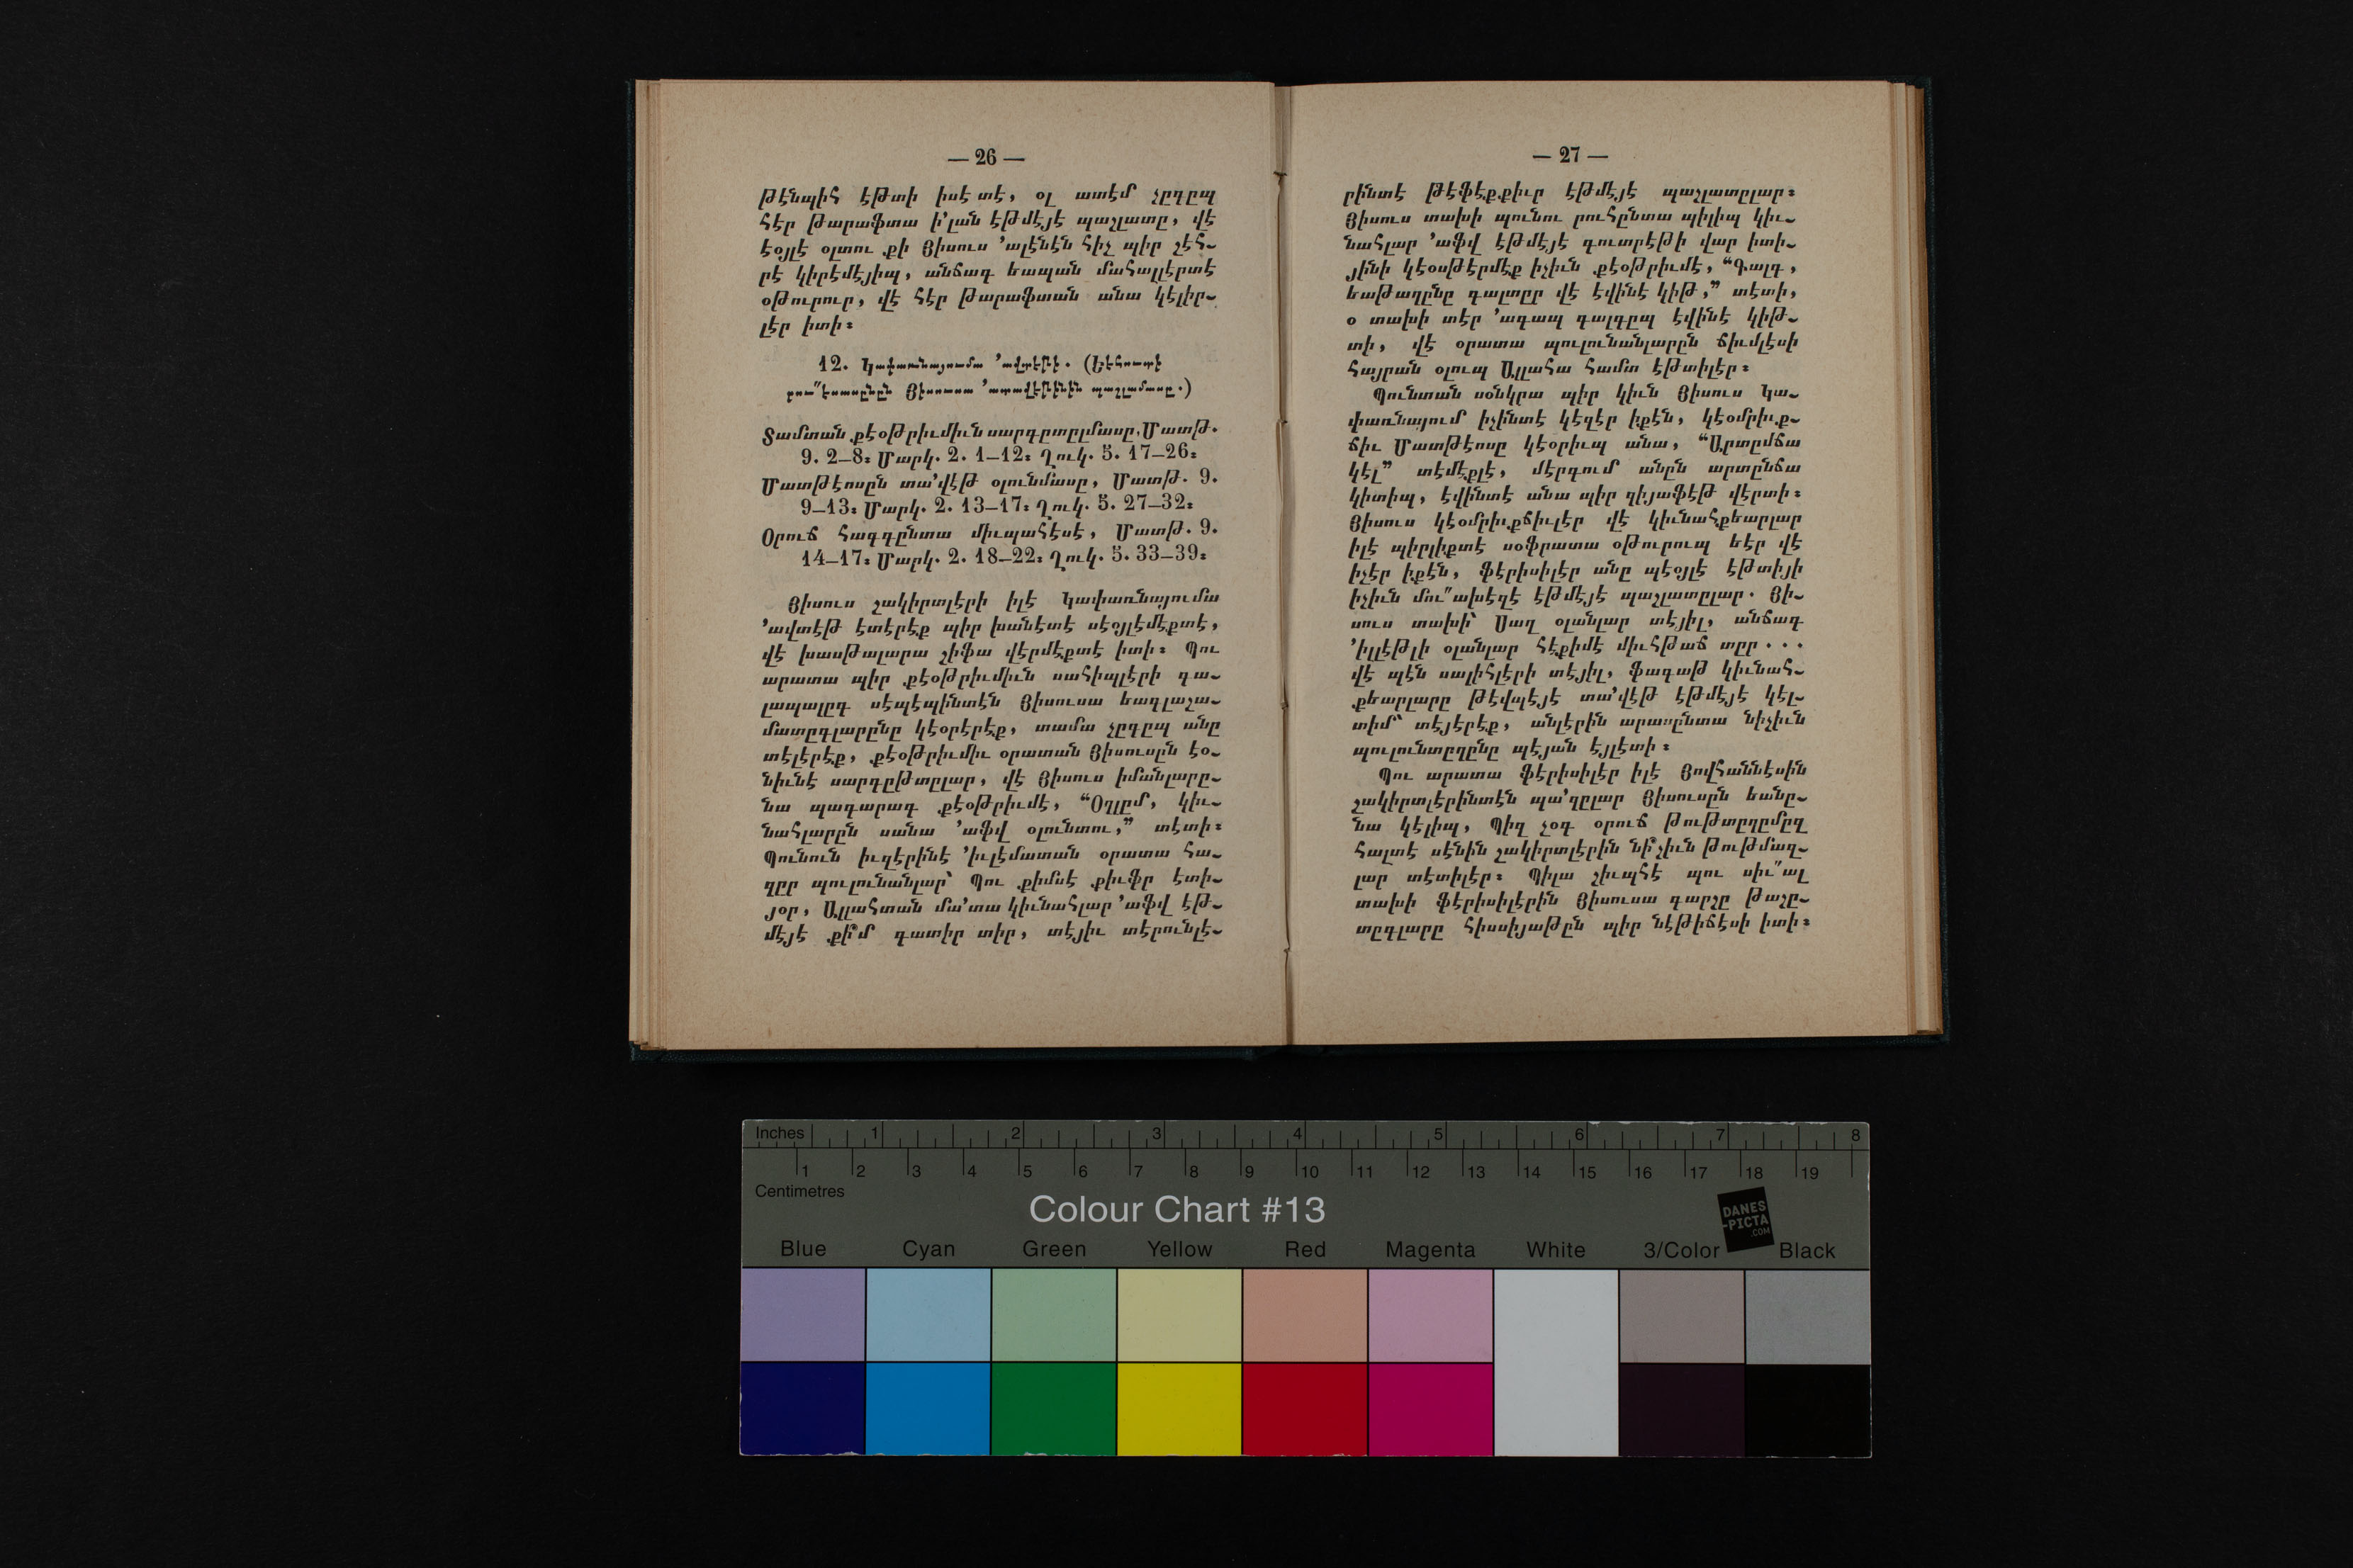 — 26 —
թէնպիհ էթտի իսէ տէ, օլ ատէմ չըղըպ
հէր թարաֆտա ի՛լան էթմէյէ պաշլատը, վէ
էօյլէ օլտու քի Յիսուս ՚ալէնէն հիչ պիր շէհ֊
րէ կիրէմէյիպ, անճագ եապան մահալլէրտէ
օթուրուր, վէ հէր թարաֆտան անա կէլիր֊
լէր իտի։
12. Կափառնայումա ՚ավտէթի. (Եէհուտի
Յիսուսա ՚ատավէթինին պաշլամասը.)
Տամտան քէօթրիւմիւն սարգըտըլմասը, Մատթ.
9. 2—8։ Մարկ. 2. 1—12։ Ղուկ. 5. 17—26։
Մատթէոսըն տա՚վէթ օլունմասը, Մատթ. 9.
9—13։ Մարկ. 2. 13—17։ Ղուկ. 5. 27—32։
Օրուճ հագգընտա միւպահէսէ, Մատթ. 9.
14—17։ Մարկ. 2. 18—22։ Ղուկ. 5. 33—39։
Յիսուս շակիրտլէրի իլէ Կափառնայումա
՚ավտէթ էտէրէք պիր խանէտէ սէօյլէմէքտէ,
վէ խասթալարա շիֆա վէրմէքտէ իտի։ Պու
արատա պիր քէօթրիւմիւն սահիպլէրի գա֊
լապալըգ սէպէպինտէն Յիսուսա եագլաշա֊
մատըգլարընը կէօրէրէք, տամա չըգըպ անը
տէլէրէք, քէօթրիւմիւ օրատան Յիսուսըն էօ֊
նիւնէ սարգըթտըլար, վէ Յիսուս իմանլարը֊
նա պագարագ քէօթրիւմէ, “Օղլըմ, կիւ֊
նահլարըն սանա ՚աֆվ օլունտու,” տէտի։
Պունուն իւզէրինէ ՚իւլէմատան օրատա հա֊
զըր պուլունանլար՝ Պու քիմսէ քիւֆր էտի֊
յօր, Ալլահտան մա՚տա կիւնահլար ՚աֆվ էթ֊
մէյէ քի՞մ գատիր տիր, տէյիւ տէրունլէ֊
— 27 —
րինտէ թէֆէքքիւր էթմէյէ պաշլատըլար։
Յիսուս տախի պունու րուհընտա պիլիպ կիւ֊
նահլար ՚աֆվ էթմէյէ գուտրէթի վար իտի֊
յինի կէօսթէրմէք իչիւն քէօթրիւմէ, “Գալգ,
եաթաղընը գալտըր վէ էվինէ կիթ,” տէտի,
օ տախի տէր ՚ագապ գալգըպ էվինէ կիթ֊
տի, վէ օրատա պուլունանլարըն ճիւմլէսի
հայրան օլուպ Ալլահա համտ էթտիլէր։
Պունտան սօնկրա պիր կիւն Յիսուս Կա֊
փառնայում իչինտէ կէզէր իքէն, կէօմրիւք֊
ճիւ Մատթէոսը կէօրիւպ անա, “Արտըմճա
կէլ” տէմէքլէ, մէրգում անըն արտընճա
կիտիպ, էվինտէ անա պիր զիյաֆէթ վէրտի։
Յիսուս կէօմրիւքճիւլէր վէ կիւնահքեարլար
իլէ պիրլիքտէ սօֆրատա օթուրուպ եէր վէ
իչէր իքէն, ֆէրիսիլէր անը պէօյլէ էթտիյի
իչիւն մու՞ախէզէ էթմէյէ պաշլատըլար. Յի֊
սուս տախի՝ Սաղ օլանլար տէյիլ, անճագ
՚իլլէթլի օլանլար հէքիմէ միւհթաճ տըր . . .
վէ պէն սալիհլէրի տէյիլ, ֆագաթ կիւնահ֊
քեարլարը թէվպէյէ տա՚վէթ էթմէյէ կէլ֊
տիմ՝ տէյէրէք, անլէրին արասընտա նիչիւն
պուլունտըղընը պէյան էյլէտի։
Պու արատա ֆէրիսիլէր իլէ Յովհաննէսին
շակիրտլէրինտէն պա՚զըլար Յիսուսըն եանը֊
նա կէլիպ, Պիզ չօգ օրուճ թութտըղըմըզ
հալտէ սէնին շակիրտլէրին նի՞չիւն թութմազ֊
լար տէտիլէր։ Պիլա շիւպհէ պու սիւ՞ալ
տախի ֆէրիսիլէրին Յիսուսա գարշը թաշը֊
տըգլարը հիսսիյաթըն պիր նէթիճէսի իտի։
Inches 1 2 3 4 5 6 7 8
1 2 3 4 5 6 7 8 9 10 11 12 13 14 15 16 17 18 19
Centimetres
Colour Chart #13
DANES
-PICTA
.COM
Blue Cyan Green Yellow Red Magenta White 3/Color Black